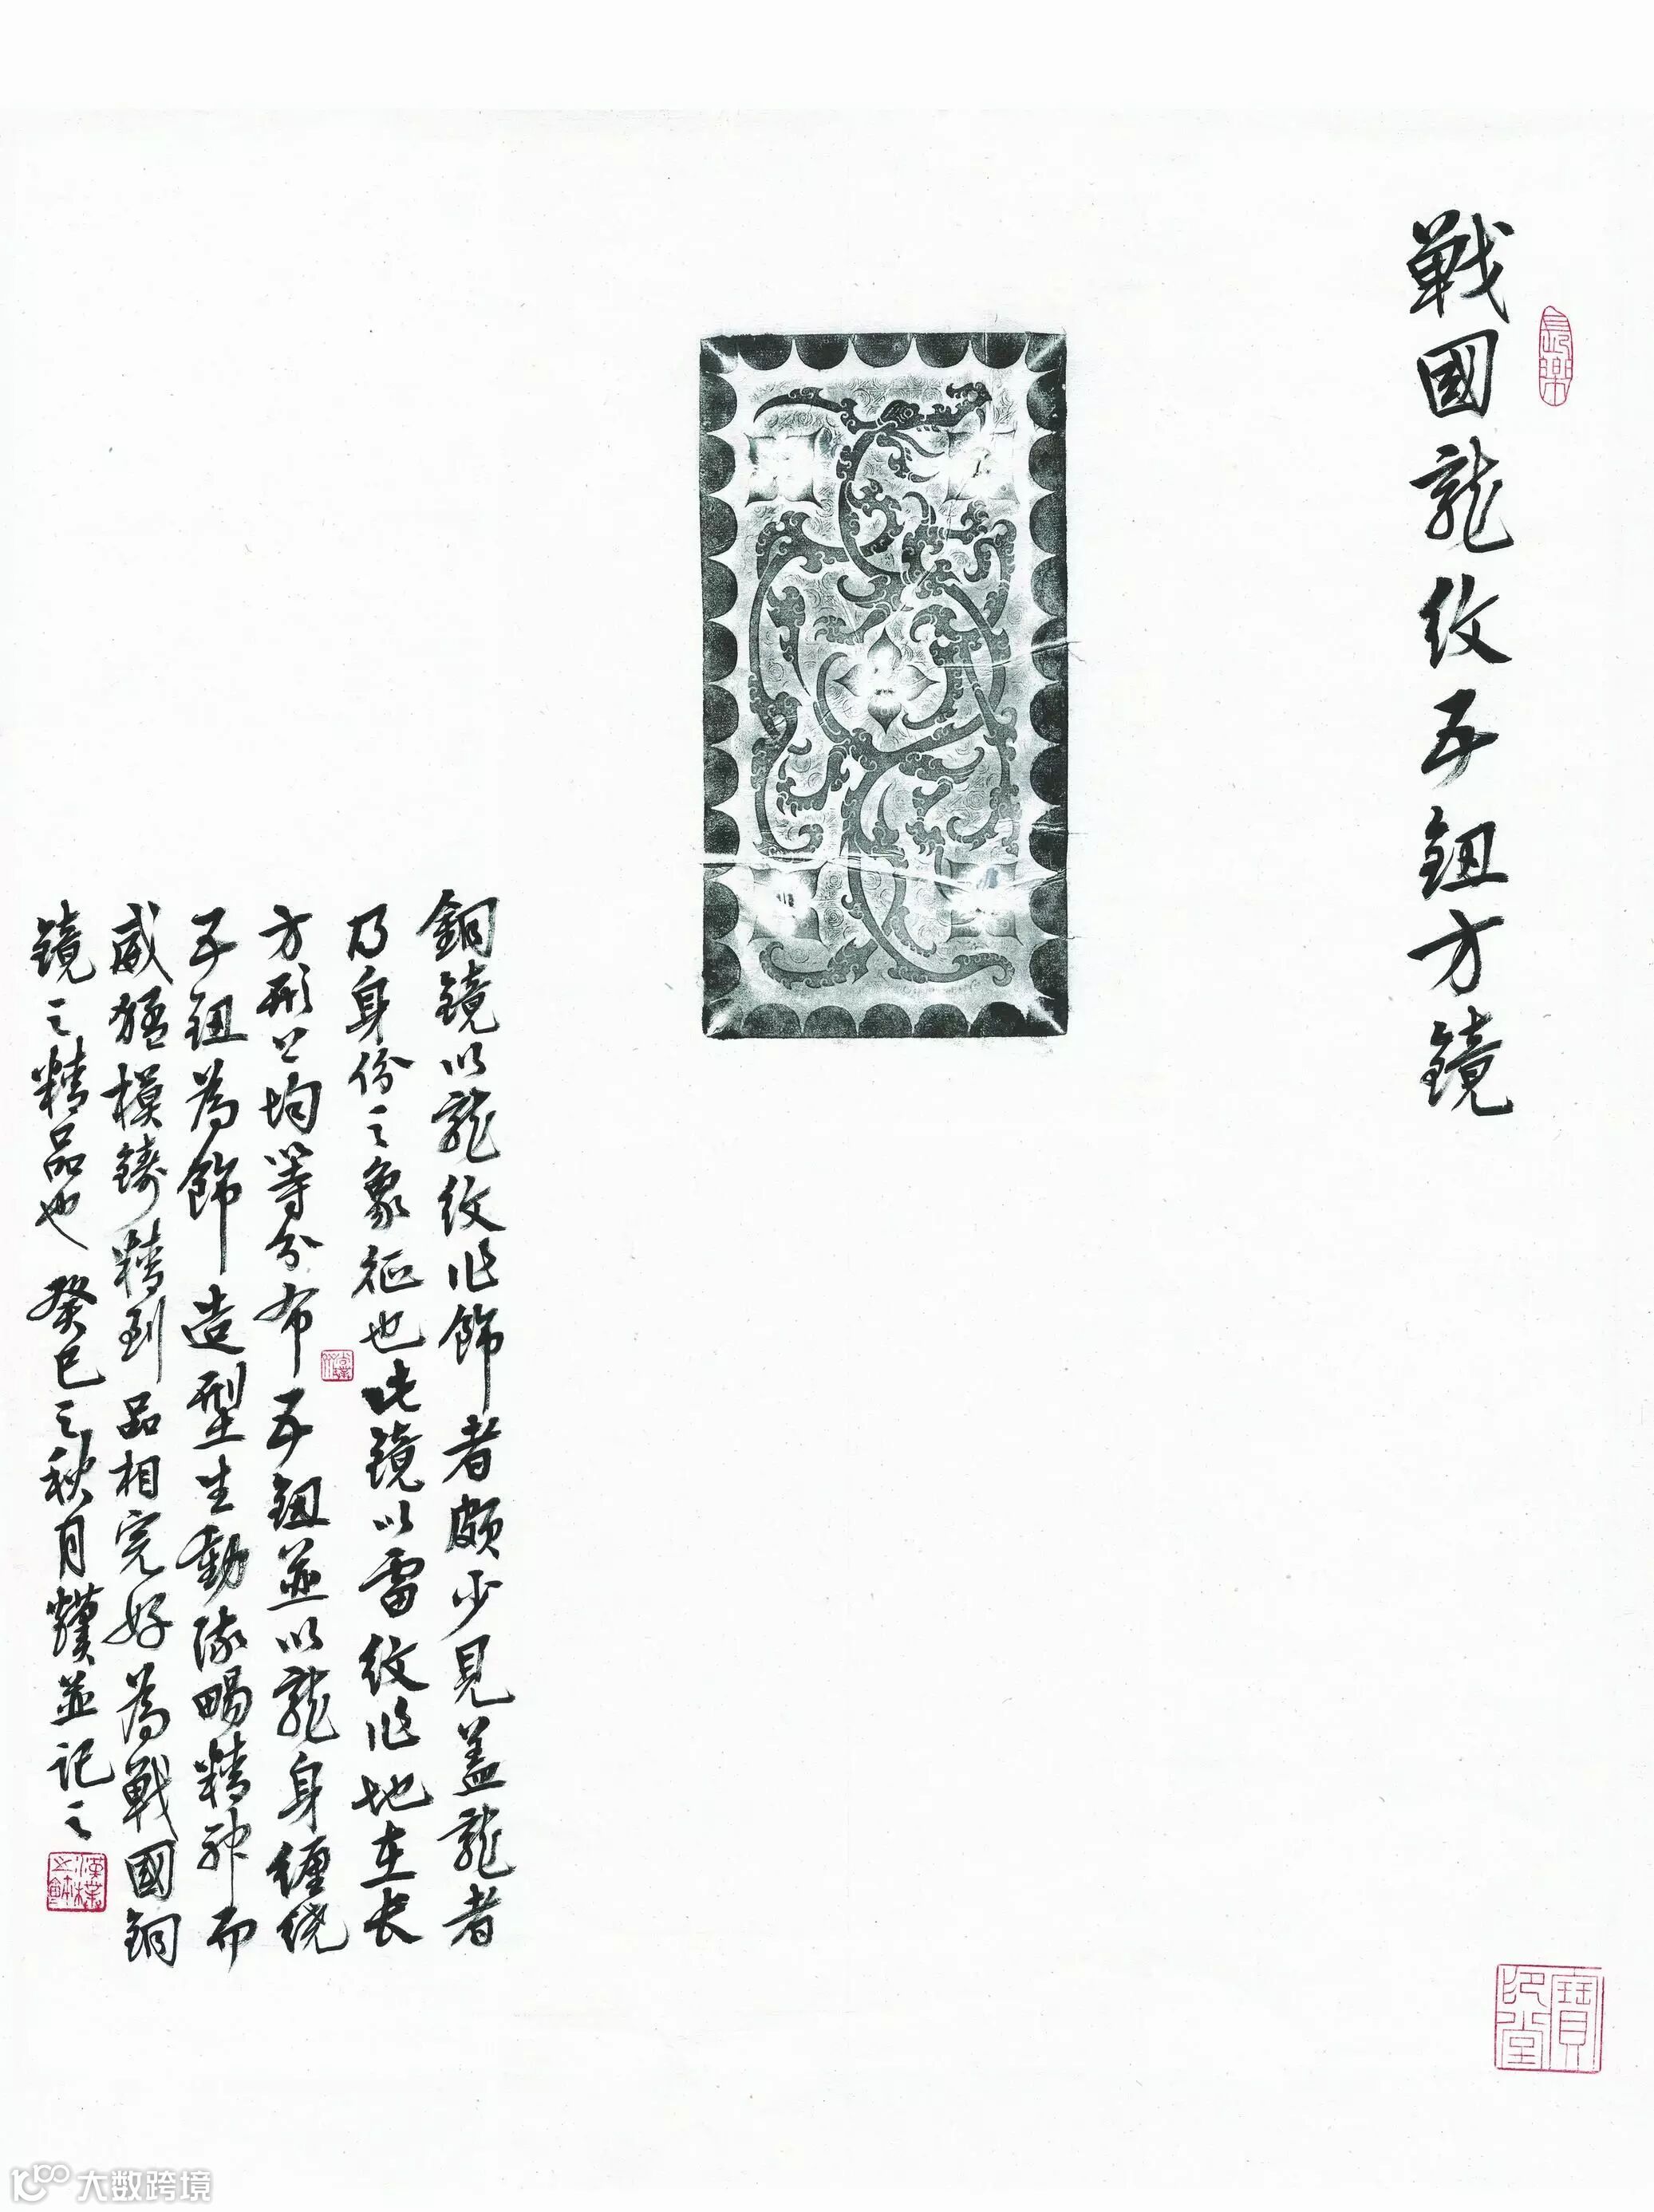 戰國龍紋五鈕方鏡
長樂
銅鏡以龍紋作飾者頗少見蓋龍者
乃身份之象征也此鏡以雷紋作地在长
方形上均等分布五鈕並以龍身缠绕
五鈕為飾造型生動流暢精神而
威猛模鑄精到品相完好為戰國銅
鏡之精品也 癸巳之秋月 並記之
寶
堂
大数跨境